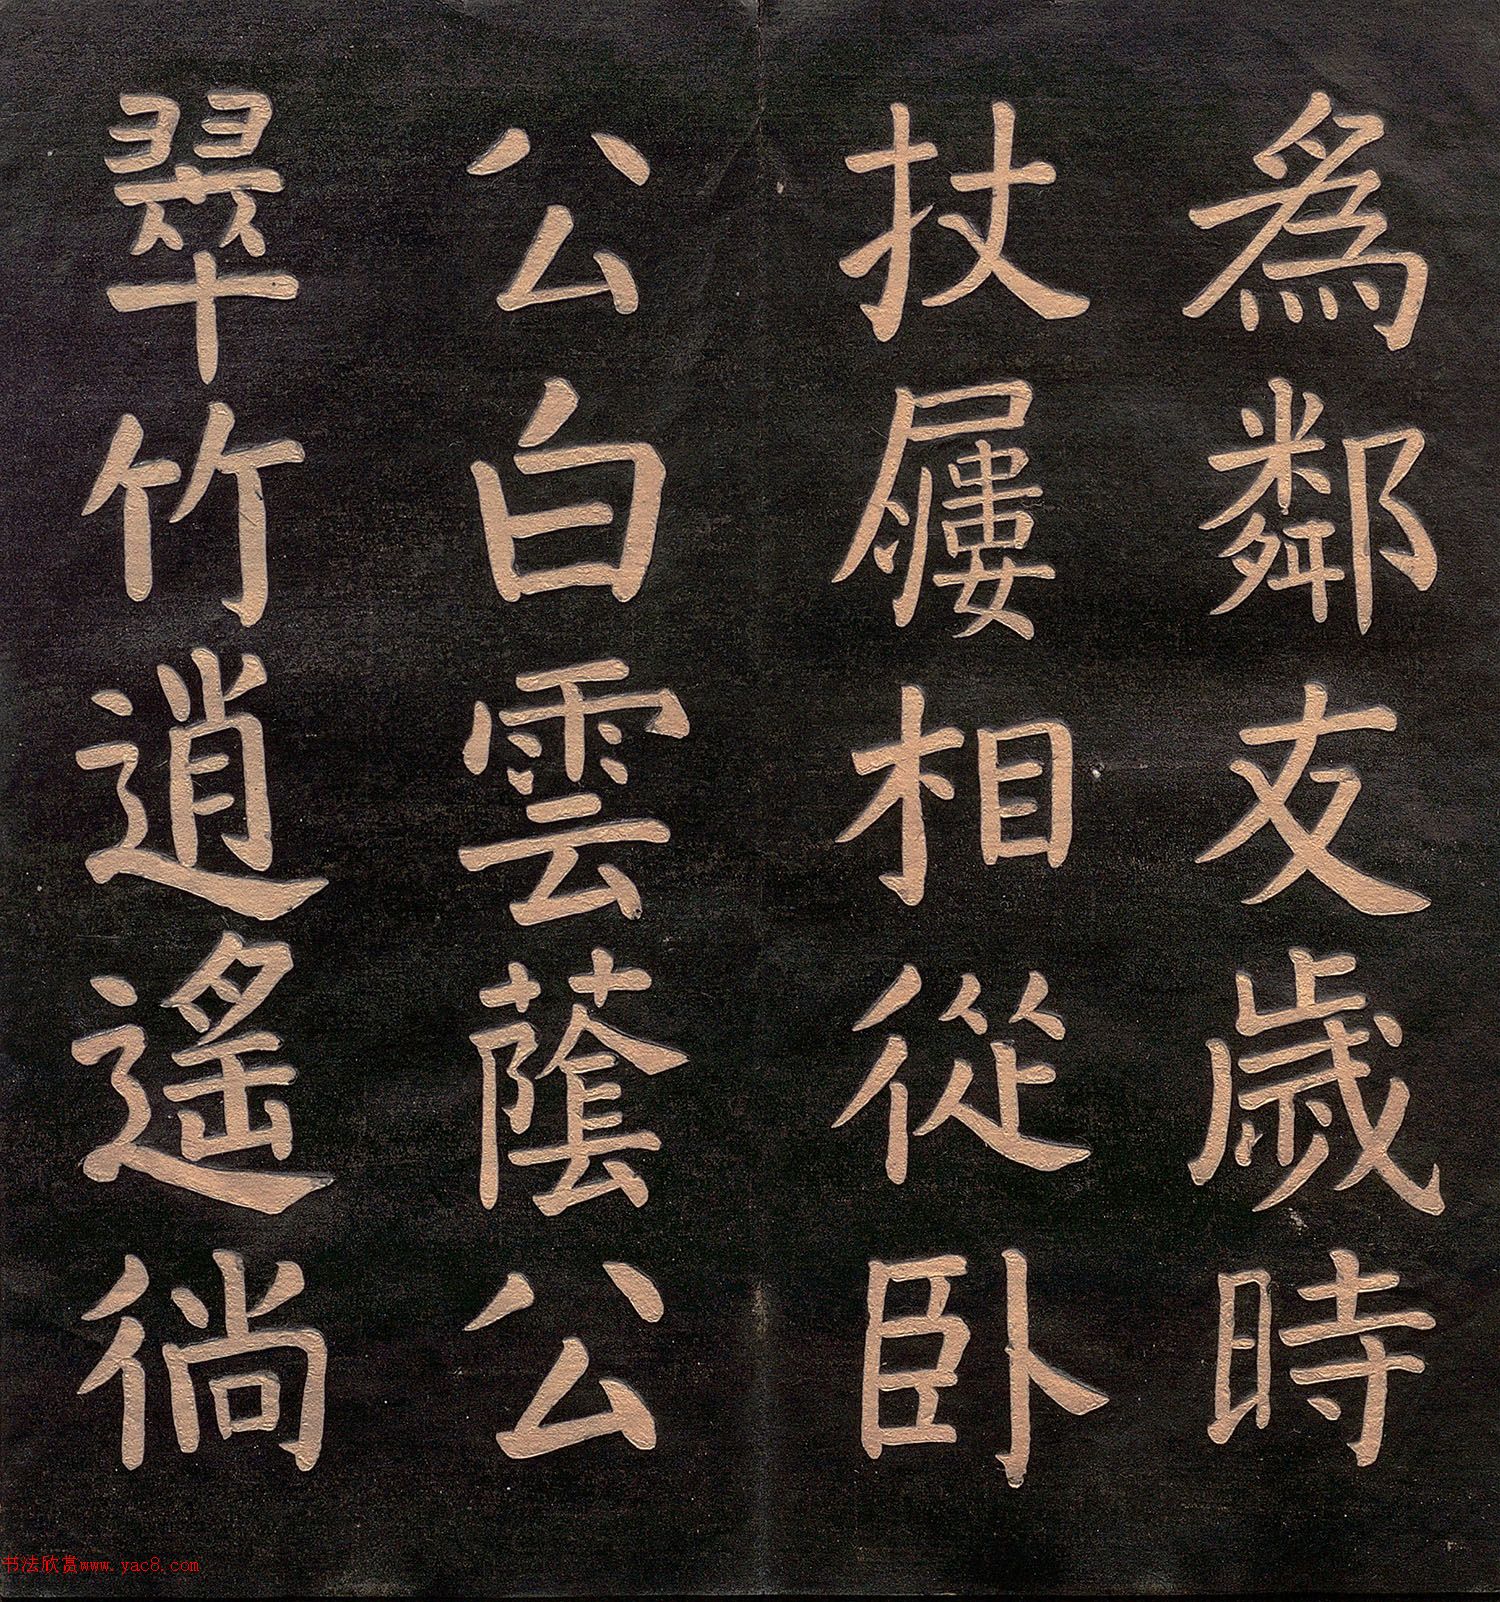 為鄰友歲時
扙屨相從臥
公白雲蔭公
翠竹逍遙徜
书法欣赏www.yac8.com